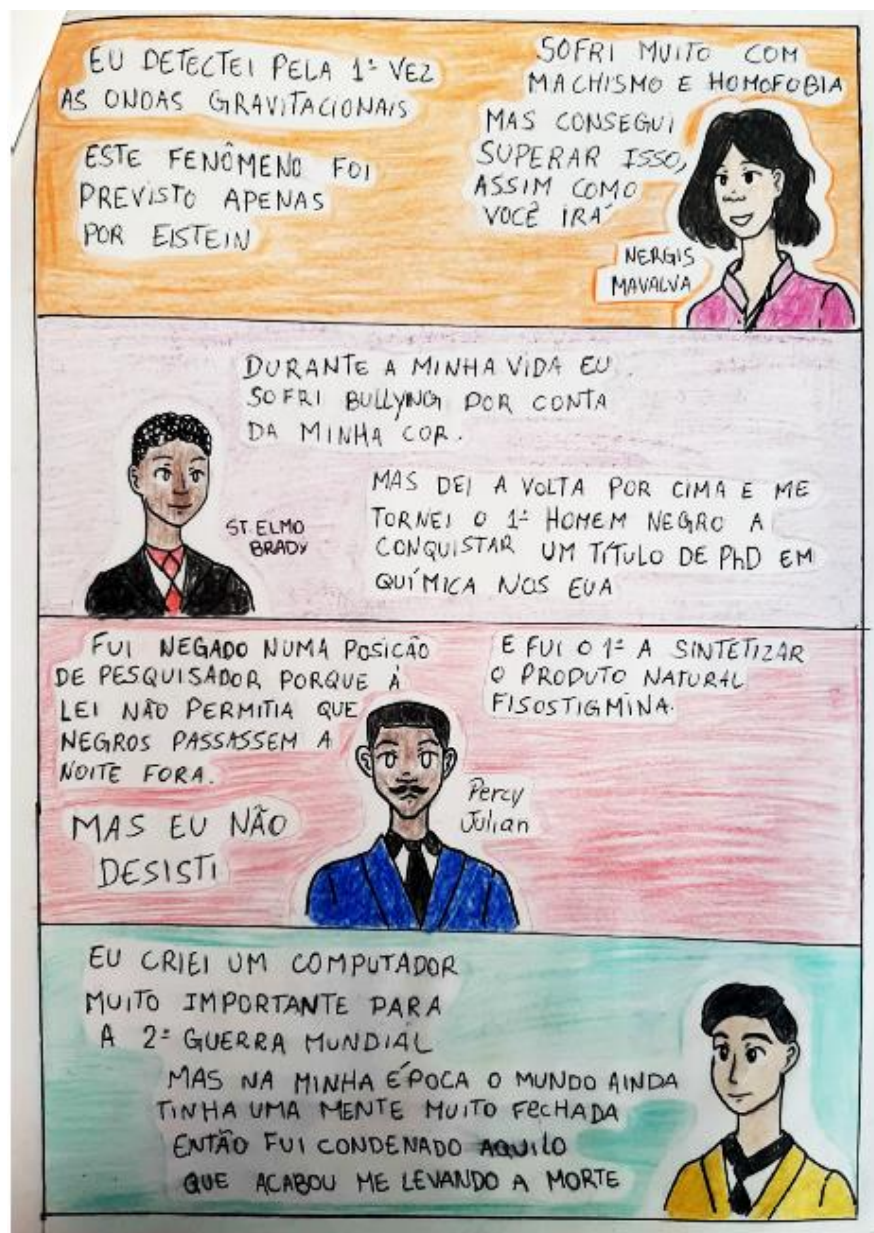 EU DETECTEI PELA 1ª VEZ
AS ONDAS GRAVITACIONAIS
ESTE FENÔMENO FOI
PREVISTO APENAS
POR EISTEIN
SOFRI MUITO COM
MACHISMO E HOMOFOBIA
MAS CONSEGUI
SUPERAR ISSO,
ASSIM COMO
VOCÊ IRÁ
NERGIS
MAVALVA
DURANTE A MINHA VIDA EU
SOFRI BULLYNG POR CONTA
DA MINHA COR.
ST. ELMO
BRADY
MAS DEI A VOLTA POR CIMA E ME
TORNEI O 1º HOMEM NEGRO A
CONQUISTAR UM TÍTULO DE PhD EM
QUÍMICA NOS EUA
FUI NEGADO NUMA POSICÃO
DE PESQUISADOR PORQUE À
LEI NÃO PERMITIA QUE
NEGROS PASSASSEM A
NOITE FORA.
MAS EU NÃO
DESISTI
Percy
Julian
E FUI O 1º A SINTETIZAR
O PRODUTO NATURAL
FISOSTIGMINA.
EU CRIEI UM COMPUTADOR
MUITO IMPORTANTE PARA
A 2ª GUERRA MUNDIAL
MAS NA MINHA ÉPOCA O MUNDO AINDA
TINHA UMA MENTE MUITO FECHADA
ENTÃO FUI CONDENADO AQUILO
QUE ACABOU ME LEVANDO A MORTE